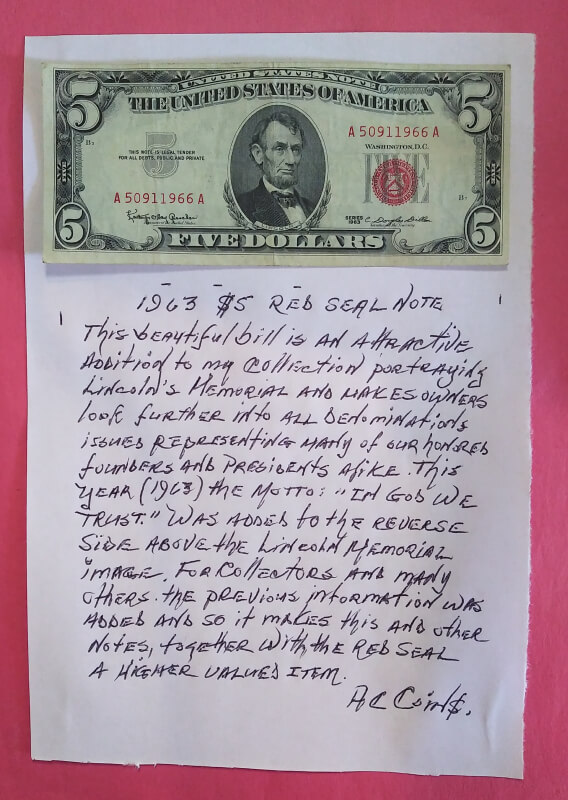 UNITED STATES NOTE
THE UNITED STATES OF AMERICA
5
5
A 50911966 A
WASHINGTON, D.C.
THIS NOTE IS LEGAL TENDER
FOR ALL DEBTS, PUBLIC AND PRIVATE
5
FIVE
A 50911966 A
SERIES
1963
FIVE DOLLARS
5
5
1963 $5 RED SEAL NOTE
This beautiful bill is AN Attractive
Addition to my Collection portraying
Lincoln's Memorial AND MAKES OWNERS
look further into ALL Denominations
issued representing many of our honred
founders AND Presidents Alike. This
year (1963) the Motto: "IN GOD WE
TRUST." WAS ADDED to the REVERSE
SIDE ABOVE the Lincoln Memorial
image. For Collectors AND MANY
others. the previous information was
ADDED AND SO it makes this AND other
NOTES, together with the RED SEAL
A HIGHER VALUED ITEM.
AC Coin$.